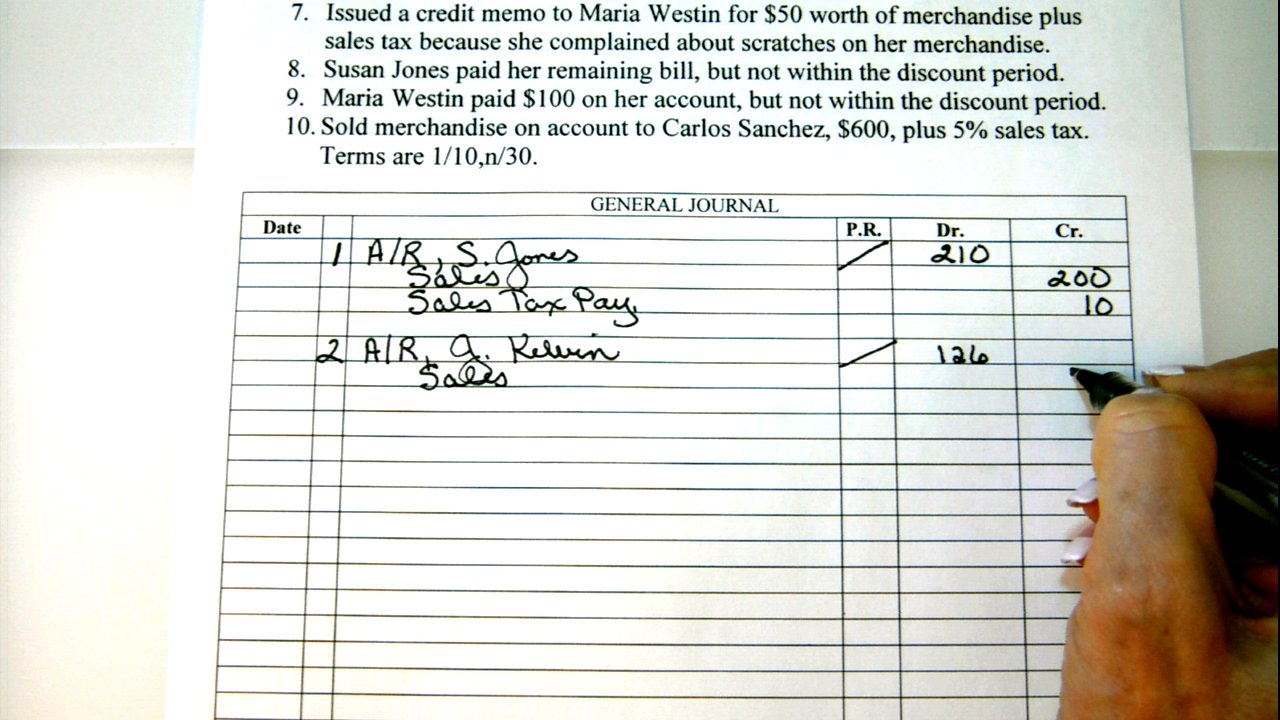 7. Issued a credit memo to Maria Westin for $50 worth of merchandise plus
sales tax because she complained about scratches on her merchandise.
8. Susan Jones paid her remaining bill, but not within the discount period.
9. Maria Westin paid $100 on her account, but not within the discount period.
10. Sold merchandise on account to Carlos Sanchez, $600, plus 5% sales tax.
Terms are 1/10,n/30.
GENERAL JOURNAL
Date P.R. Dr. Cr.
1 A/R, S. Jones 210
Sales 200
Sales Tax Pay. 10
2 A/R, J. Kelvin 126
Sales